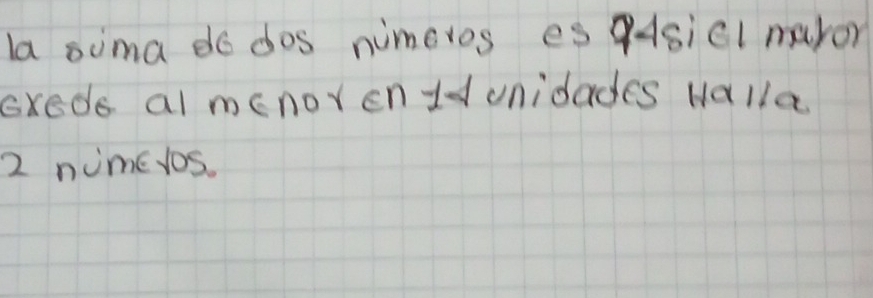 la suma de dos números es 94 si el mayor
exede al menor en 14 unidades Halla
2 números.